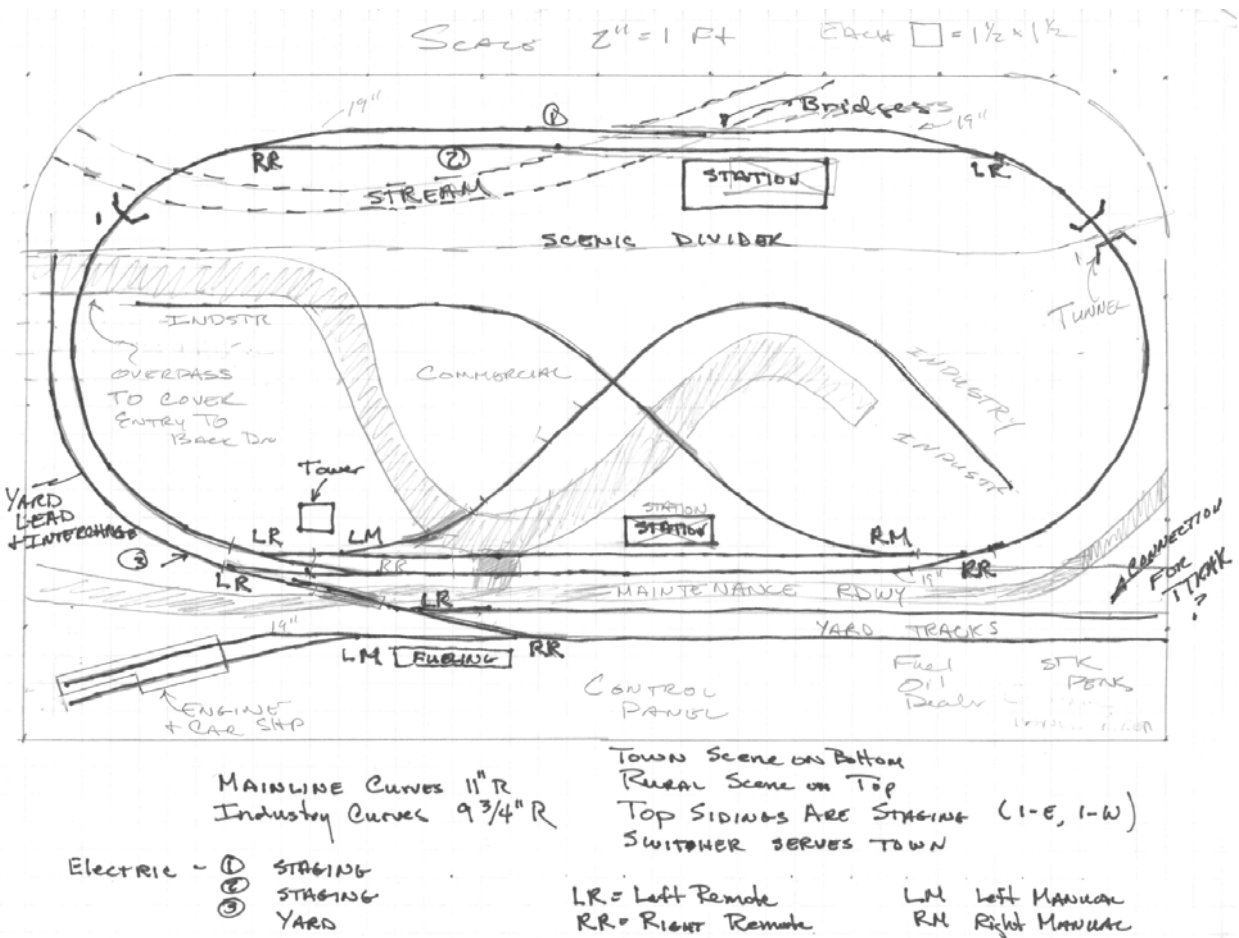 SCALE 2" = 1 Ft
EACH □ = 1½ x 1½
19"
①
Bridges
19"
RR
②
STREAM
STATION
LR
SCENIC DIVIDER
TUNNEL
INDSTR
OVERPASS
TO COVER
ENTRY TO
BACK DN
COMMERCIAL
INDUSTRY
INDUSTR
YARD
LEAD
+ INTERCHANGE
③
Tower
LR
LM
STATION
STATION
RM
RR
LR
RR
19"
MAINTENANCE RDWY
CONNECTION
FOR
TTRAK
?
LR
YARD TRACKS
19"
LM
FUELING
RR
ENGINE
+ CAR SHP
CONTROL
PANEL
Fuel
Oil
Dealr
STK
PENS
MAINLINE CURVES 11" R
Industry Curves 9 3/4" R
Town Scene on Bottom
Rural Scene on Top
Top Sidings Are Staging (1-E, 1-W)
SWITCHER SERVES TOWN
Electric - ① STAGING
② STAGING
③ YARD
LR = Left Remote
RR = Right Remote
LM Left MANUAL
RM Right MANUAL